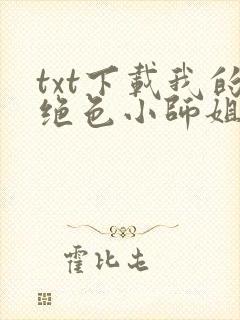 txt下載我的
绝色小師姐
霍比屯